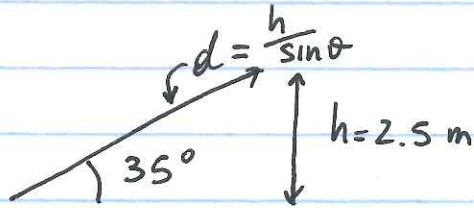 d = h/sinθ
h = 2.5 m
35°